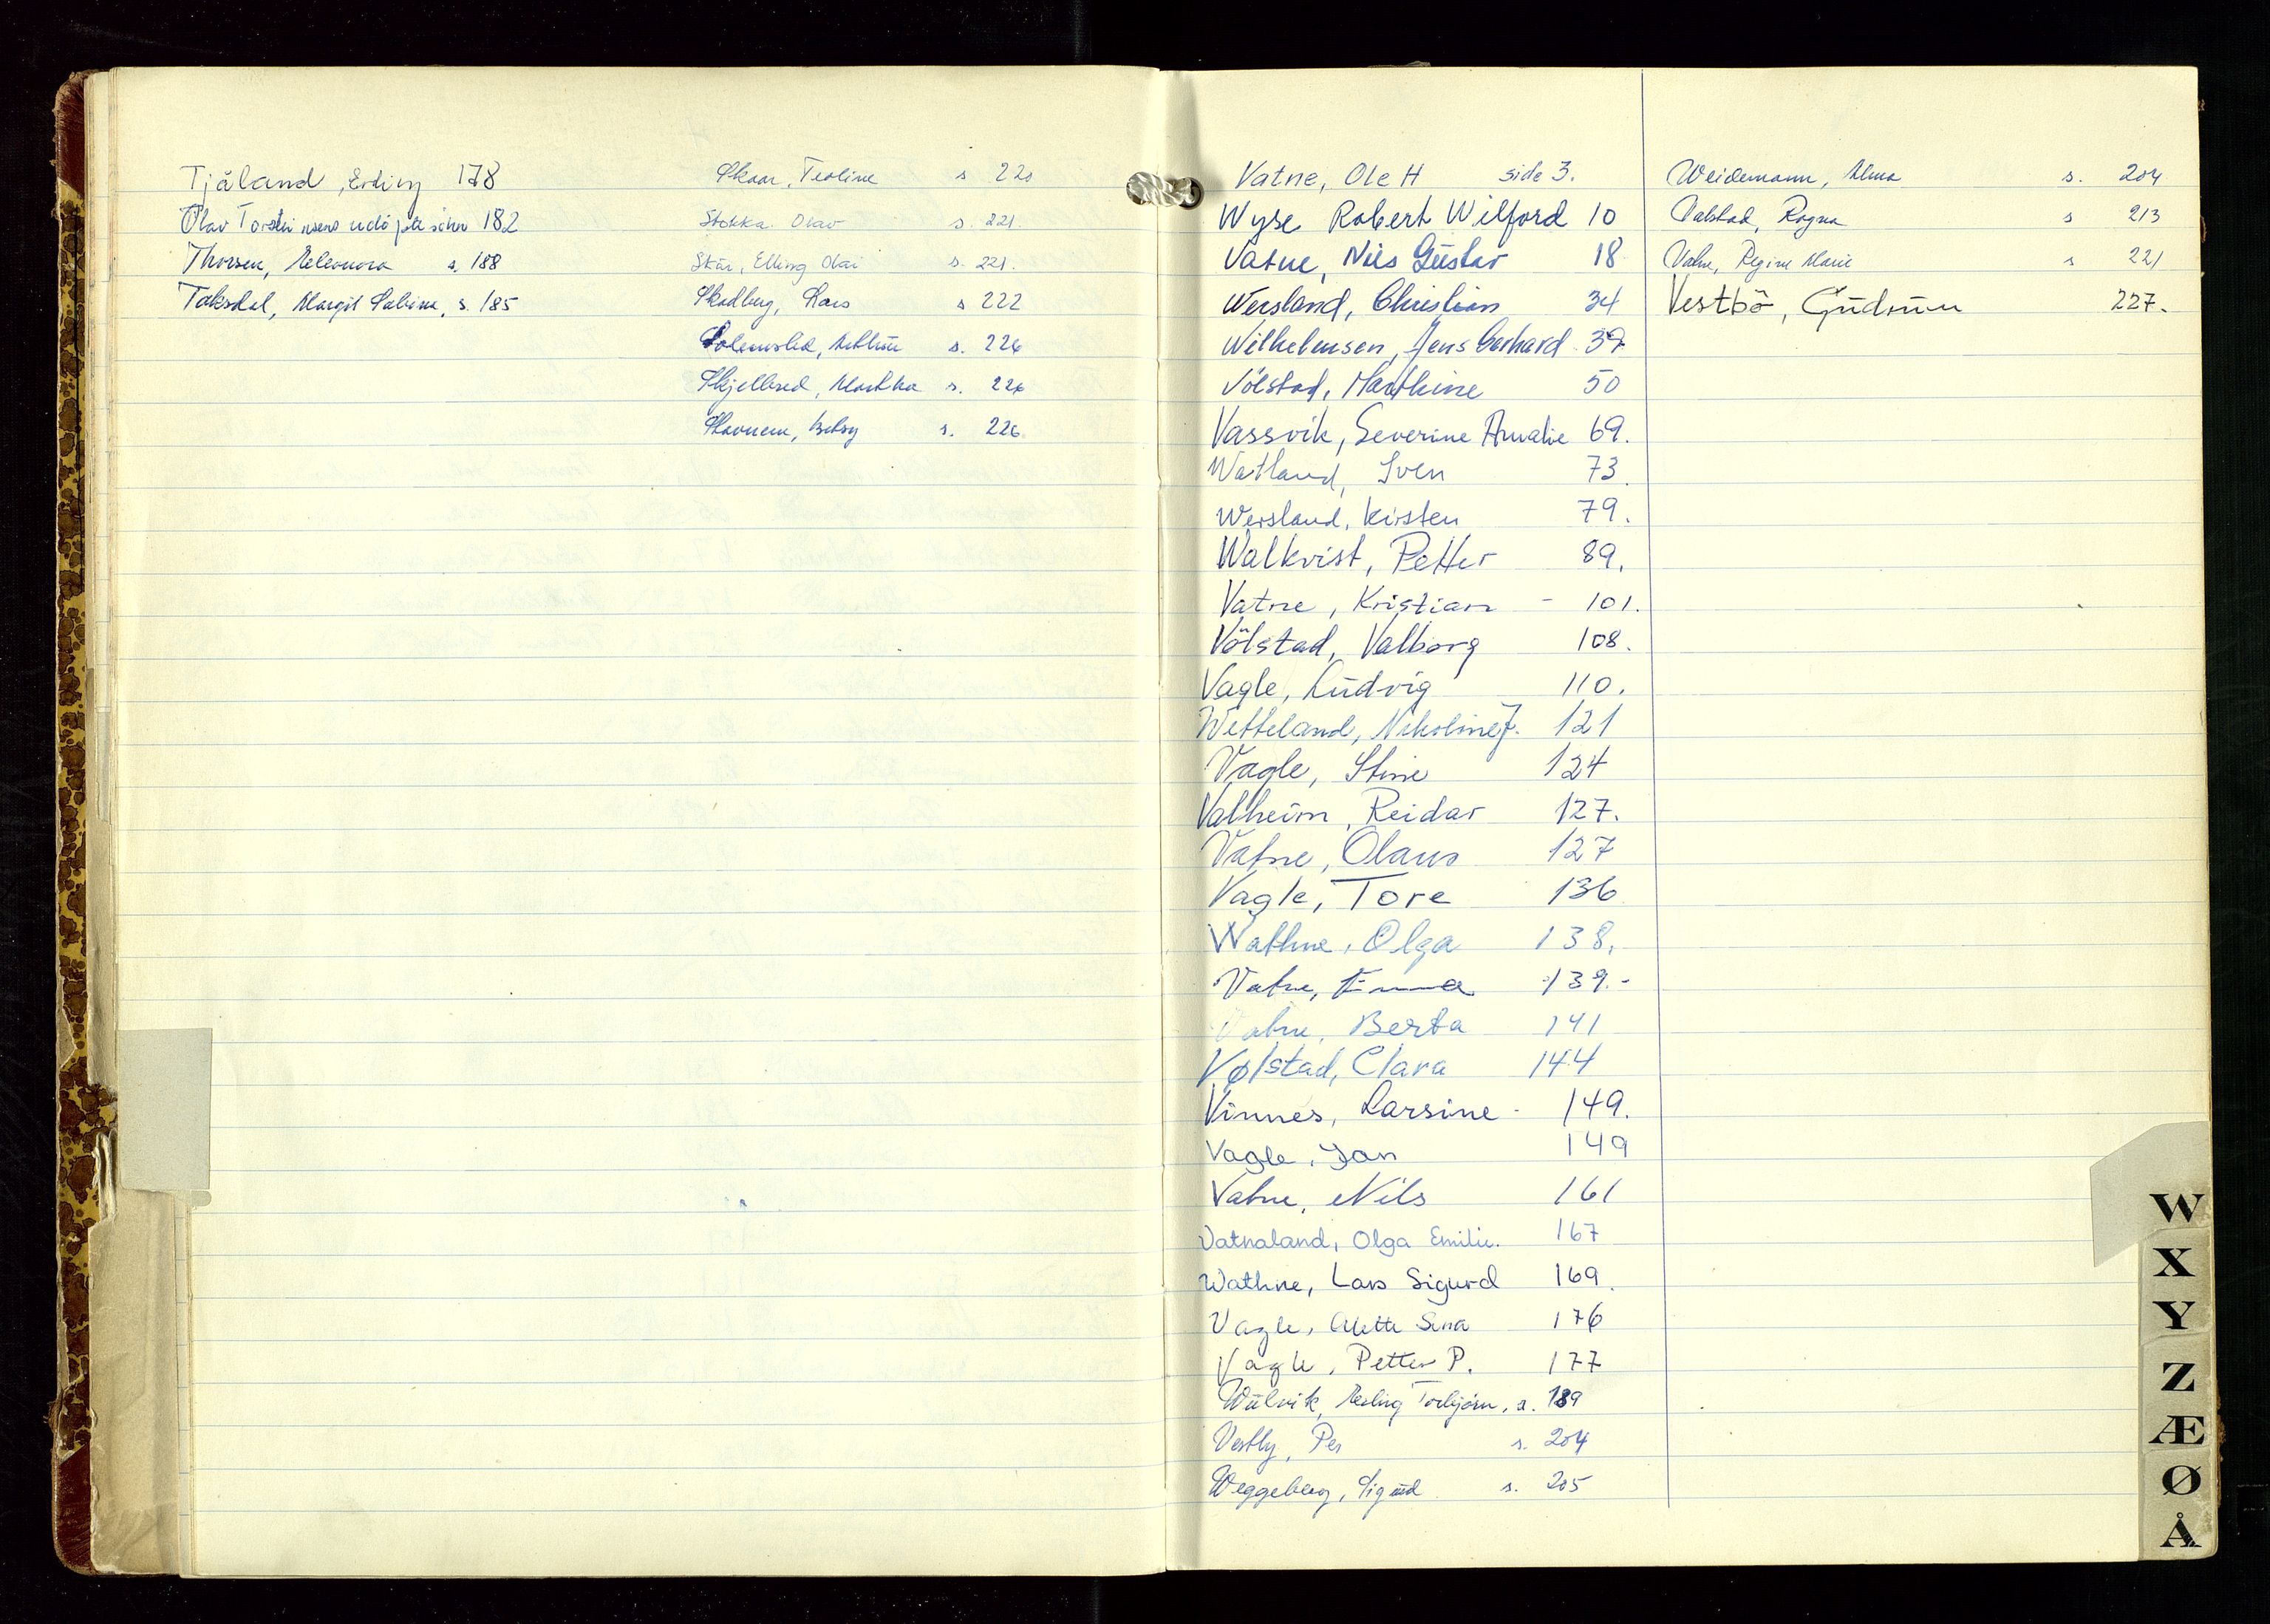 Tjåland, Erling 178
Olav Torsteinsens 182
Thorsen, Eleonora s. 188
Taksdal, Margit Sabina, s. 185
Skaar, Teoline s 220
Stokka. Olav s. 221.
Skår, Elling Olai s. 221.
Skadberg, Lars s 222
s. 226
Skjelbred, Martha s. 226
Stavnem, Betsy s. 226
Vatne, Ole H side 3.
Wyse Robert Wilford 10
Vatne, Nils Gustav 18
Wersland, Christian 34
Wilhelmsen, Jens Gerhard 39
Völstad, Marthine 50
Vassvik, Severine Amalie 69.
Watland, Sven 73.
Wersland, Kirsten 79.
Walkvist, Petter 89.
Vatne, Kristian - 101.
Völstad, Valborg 108.
Vagle, Ludvig 110.
Wetteland, Nikoline J. 121
Vagle, Stine 124
Valheim, Reidar 127.
Vatne, Olaus 127
Vagle, Tore 136
Wathne, Olga 138.
Vatne, Emma 139.-
Vatne, Berta 141
Vølstad, Clara 144
Vinnes, Larsine - 149.
Vagle, Jan 149
Vatne, Nils 161
Vatnaland, Olga Emilie. 167
Wathne, Lars Sigurd 169.
Vagle, Alette Sina 176
Vagle, Petter P. 177
Wulvik, Torbjörn, s. 189
Vestly, Per s. 204
Weggeberg, Sigurd s. 205
Weidemann, Alma s. 204
Valstad, Ragna s 213
Vatne, Regine Marie s 221
Vestbö, Gudrun 227.
W
X
Y
Z
Æ
Ø
Å